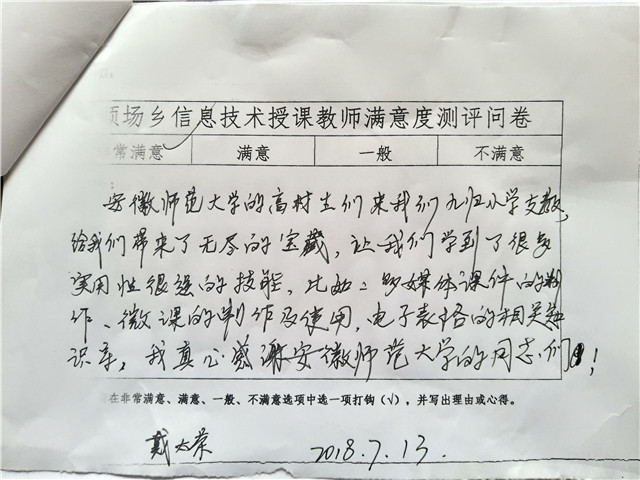 项场乡信息技术授课教师满意度测评问卷
常满意 满意 一般 不满意
安徽师范大学的高材生们来我们九归小学支教,
给我们带来了无尽的宝藏,让我们学到了很多
实用性很强的技能,比如:多媒体课件的制
作、微课的制作及使用,电子表格的相关知
识等,我真心感谢安徽师范大学的同志们!
在非常满意、满意、一般、不满意选项中选一项打钩(√),并写出理由或心得。
戴大荣 2018.7.13.